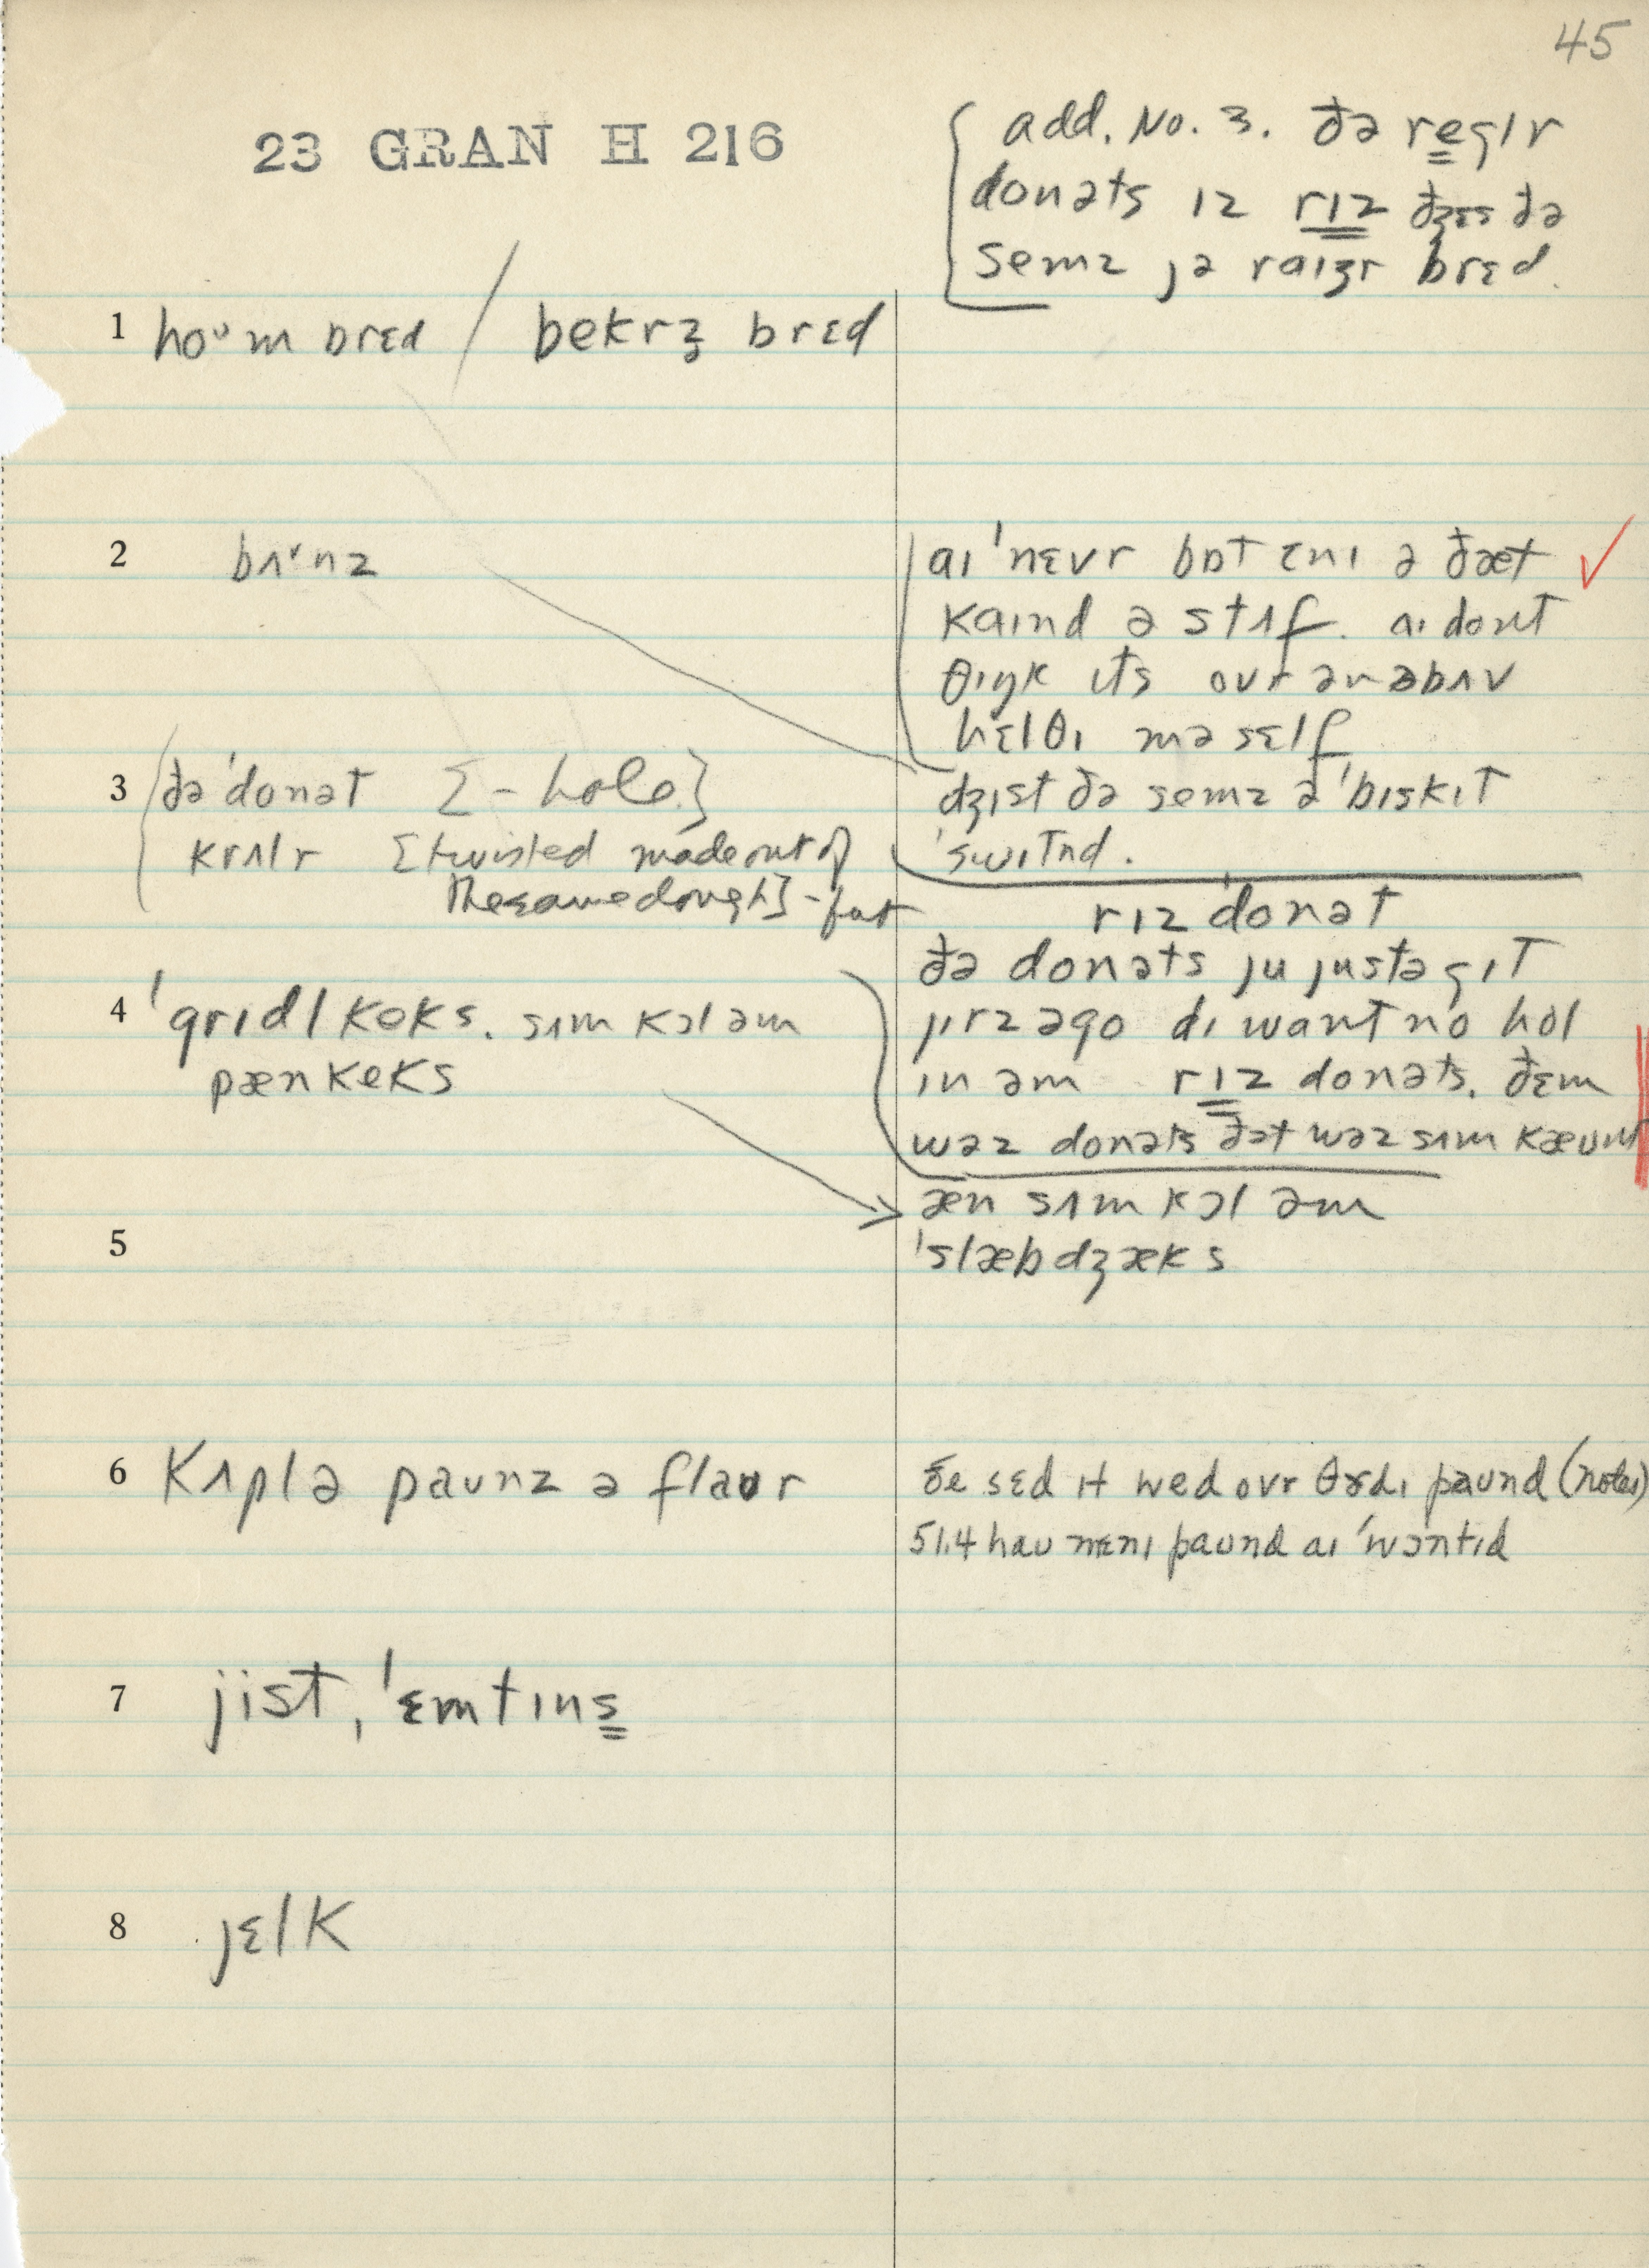 45
23 GRAN H 216
add. No. 3. ðə reglr
donəts ɪz rɪz dʒɛs ðə
semz jə raɪʒr brɛd.
1 hoᵘm brɛd / bekrz brɛd
2 bʌ˅nz
aɪ ˈnɛvr bɒt ɛnɪ ə ðæt ✓
kaɪnd ə stʌf. aɪ dont
θɪŋk ɪts ovr ənəbʌv
hɛlθɪ məsɛlf
3 ðə ˈdonət [– hole]
dʒɪst ðə semz ə ˈbɪskɪt
krʌlr [twisted made out of
ˈswitnd.
the same dough] – fat
rɪz ˈdonət
ðə donəts ju justə gɪt
4 ˈgrɪdl keks. sʌm kɔl əm
jɪrz əgo dɪ want no hol
pænkeks
ɪn əm rɪz donəts. ðɛm
wəz donəts ðət wəz sʌm kæunt
æn sʌm kɔl əm
5
ˈslæbdʒæks
6 kʌplə paunz ə flaur
ðe sɛd ɪt wed ovr θɝdɪ paund (notes)
51.4 hau mɛnɪ paund aɪ ˈwɔntɪd
7 jist, ˈɛmtɪns
8 jɛlk